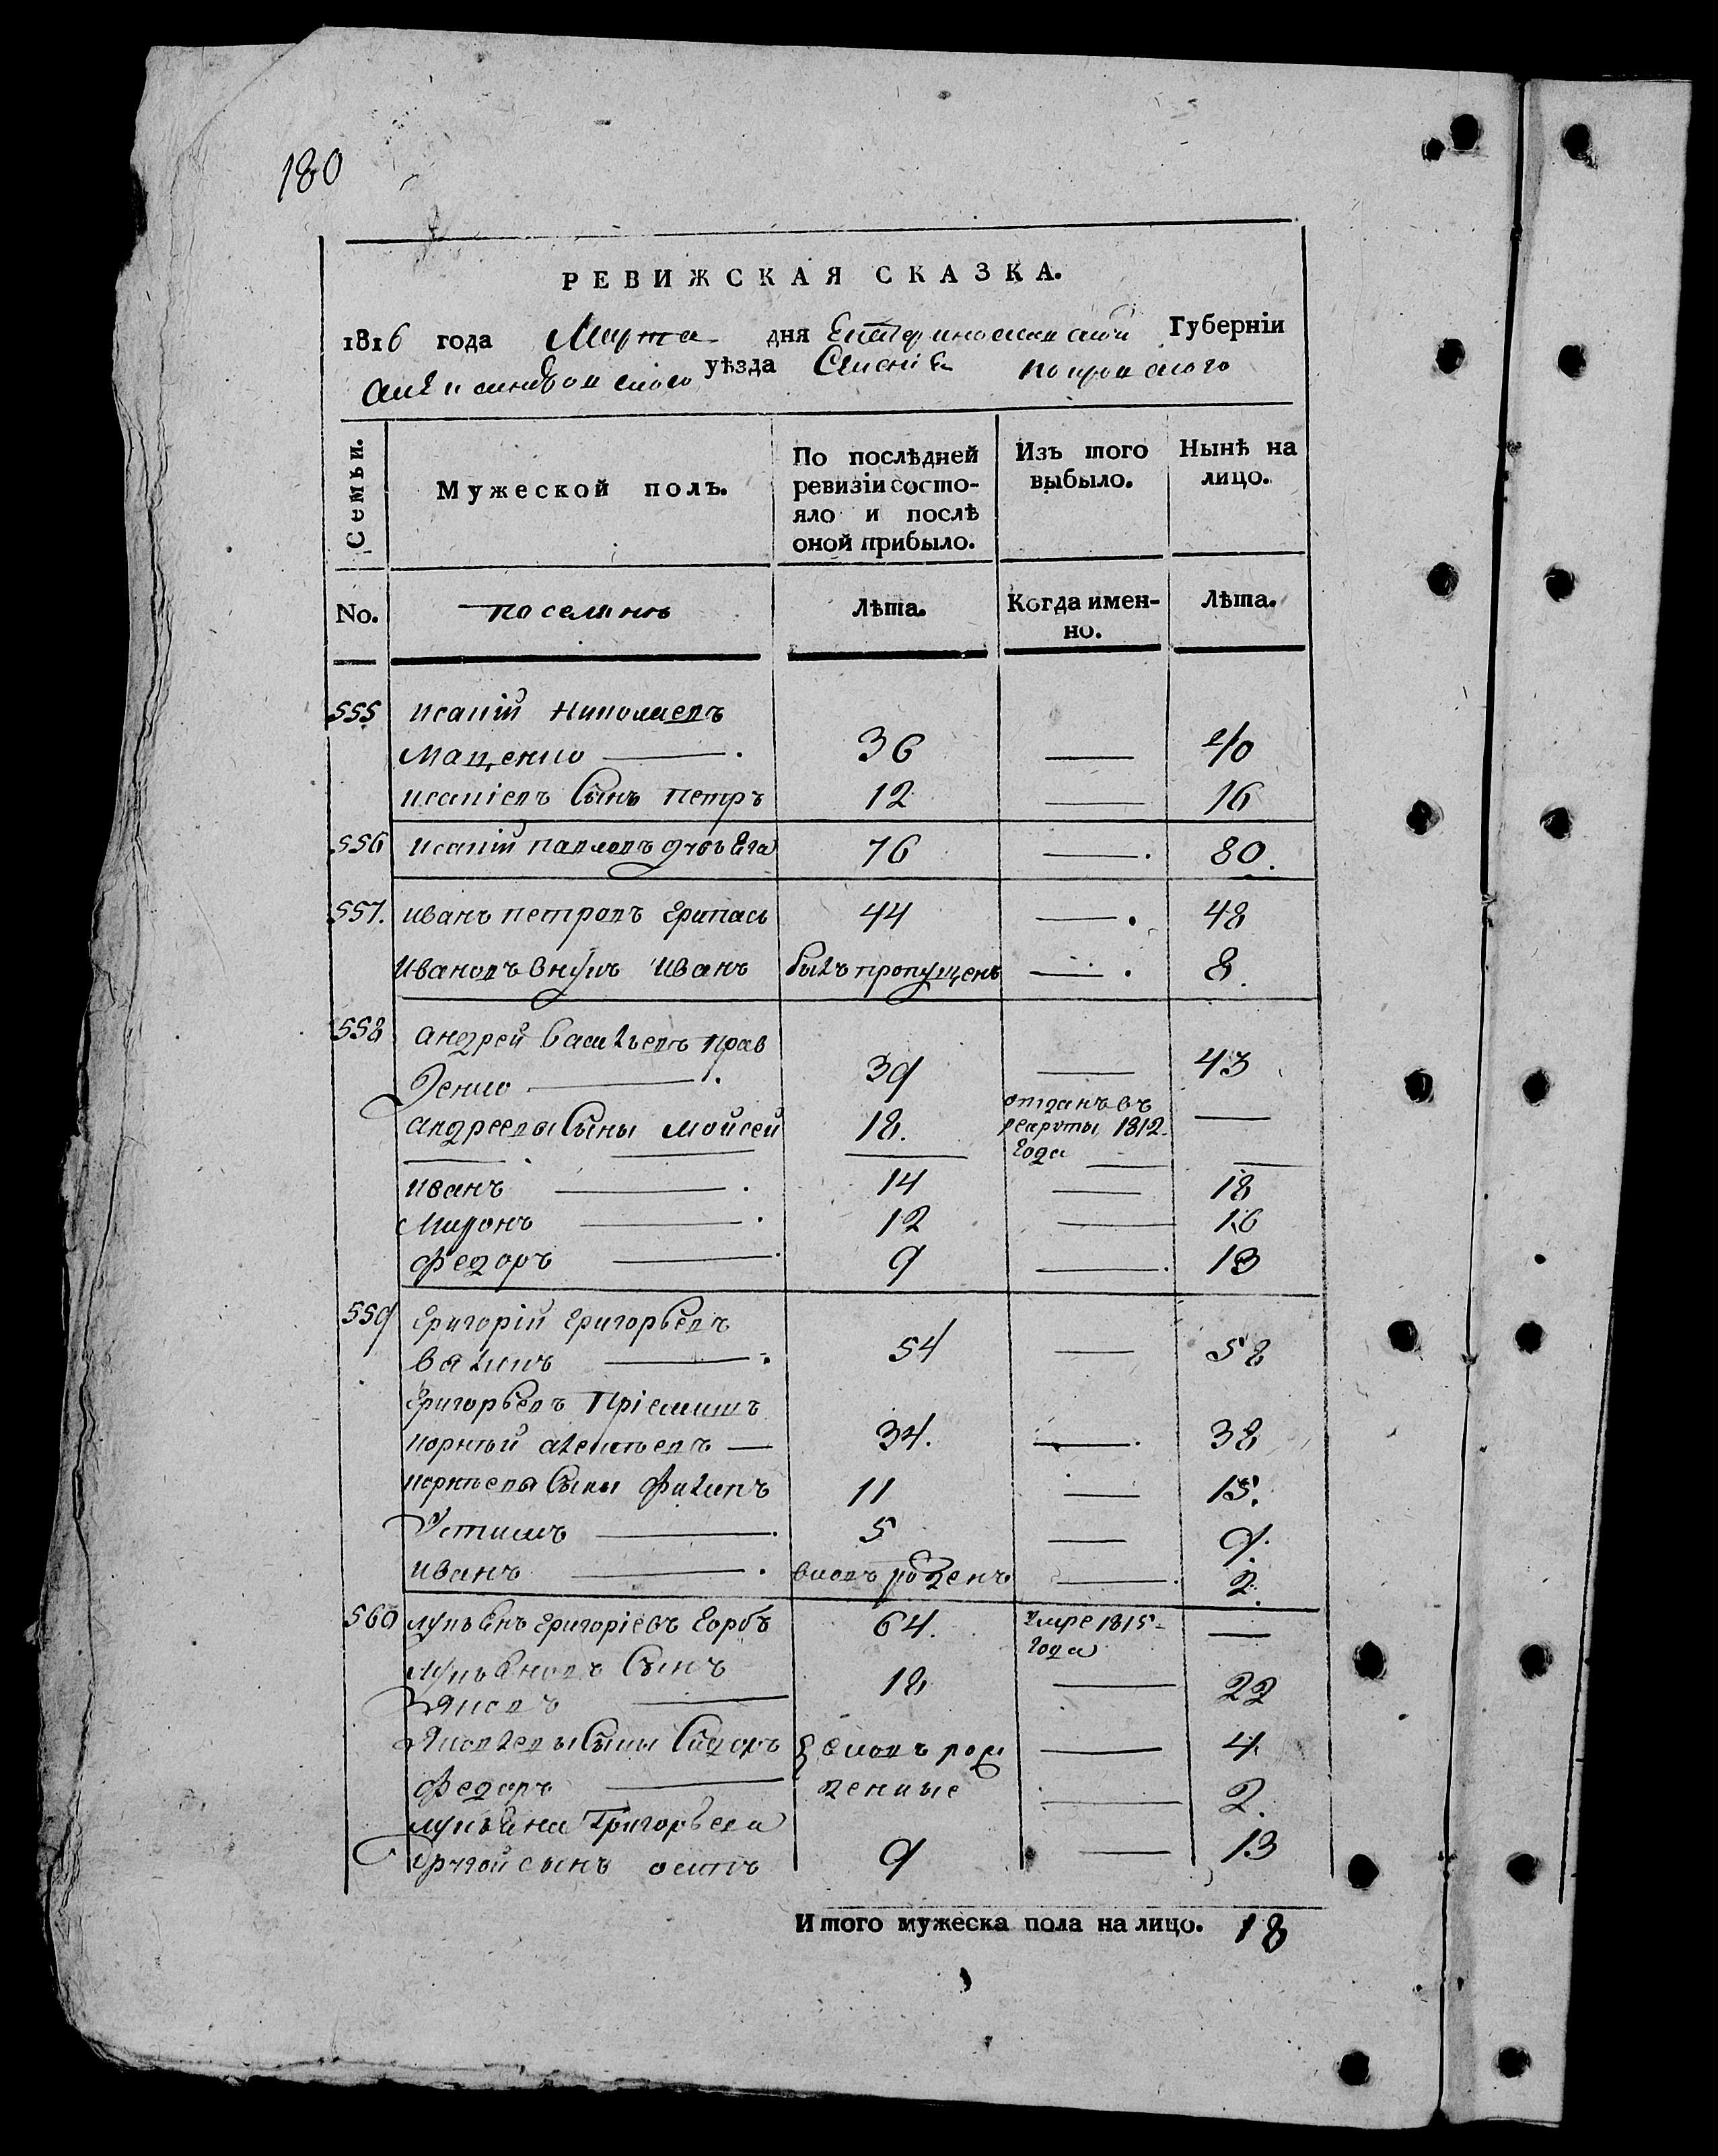 180
РЕВИЖСКАЯ СКАЗКА.
1816 года Марта дня Екатеринославской Губерніи
Александровскаго уѣзда Селенія Покровского
Семьи. Мужеской полъ. По послѣдней ревизіи состояло и послѣ оной прибыло. Изъ того выбыло. Нынѣ на лицо.
No. поселянъ Лѣта. Когда именно. Лѣта.
555 исакій Николаевъ
Маценко — 36 — 40
исакіевъ Сынъ Петръ 12 — 16
556 исакій павловъ 76 — 80.
557. иванъ петровъ Грипась 44 — 48
Ивановъ внукъ Иванъ былъ пропущенъ — 8.
558 андрей васильевъ прав
денко — 39 — 43
андреевы Сыны Мойсей 18. отданъ въ рекруты 1812 года —
иванъ — 14 — 18
Миронъ — 12 — 16
федоръ — 9 — 13
559 Григорій Григорьевъ
— 54 — 58
Григорьевъ Пріемышъ
корнѣй алексѣевъ — 34. — 38
корнѣевы Сыны Филипъ 11 — 15.
Устимъ — 5 — 9.
иванъ — вновъ рожденъ — 2.
560 лукьянъ григоріевъ Горбъ 64. умре 1815 года —
лукьяновъ Сынъ
Яковъ — 18 — 22
Яковлевы Сыны Сидоръ вновъ рож — 4.
федоръ — денные — 2.
лукьяна Григорьева
другой сынъ осипъ 9 — 13
Итого мужеска пола на лицо. 18